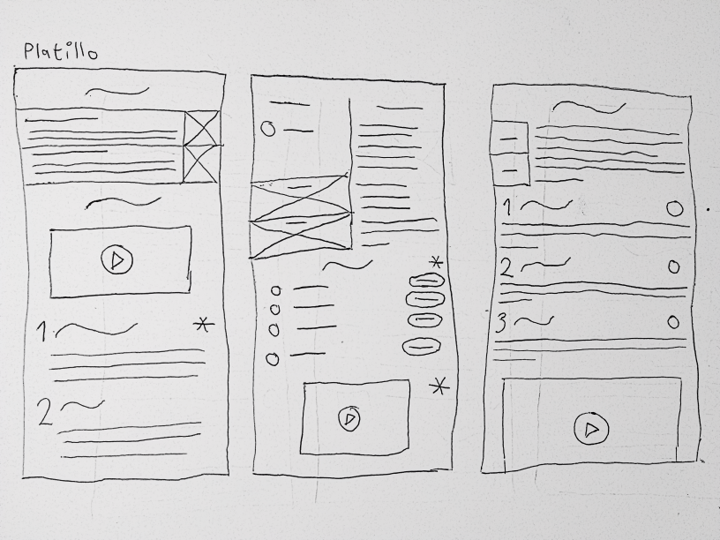 Platillo
1
2
1
2
3